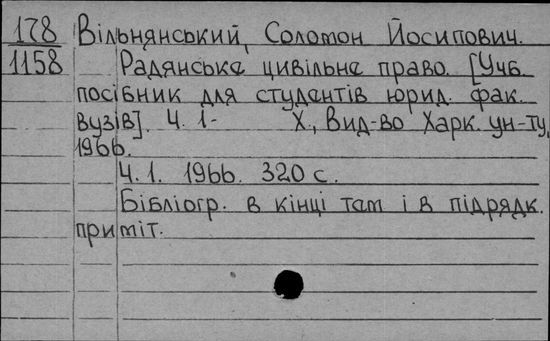 178 Вільнянський, Соломон Йосипович.
1158 Радянське цивільне право. [Учб.
посібник для студентів юрид. фак.
вузів]. Ч. 1- Х., Вид-во Харк. ун-ту,
1966.
Ч. 1. 1966. 320 с.
Бібліогр. в кінці там і в підрядк.
приміт.